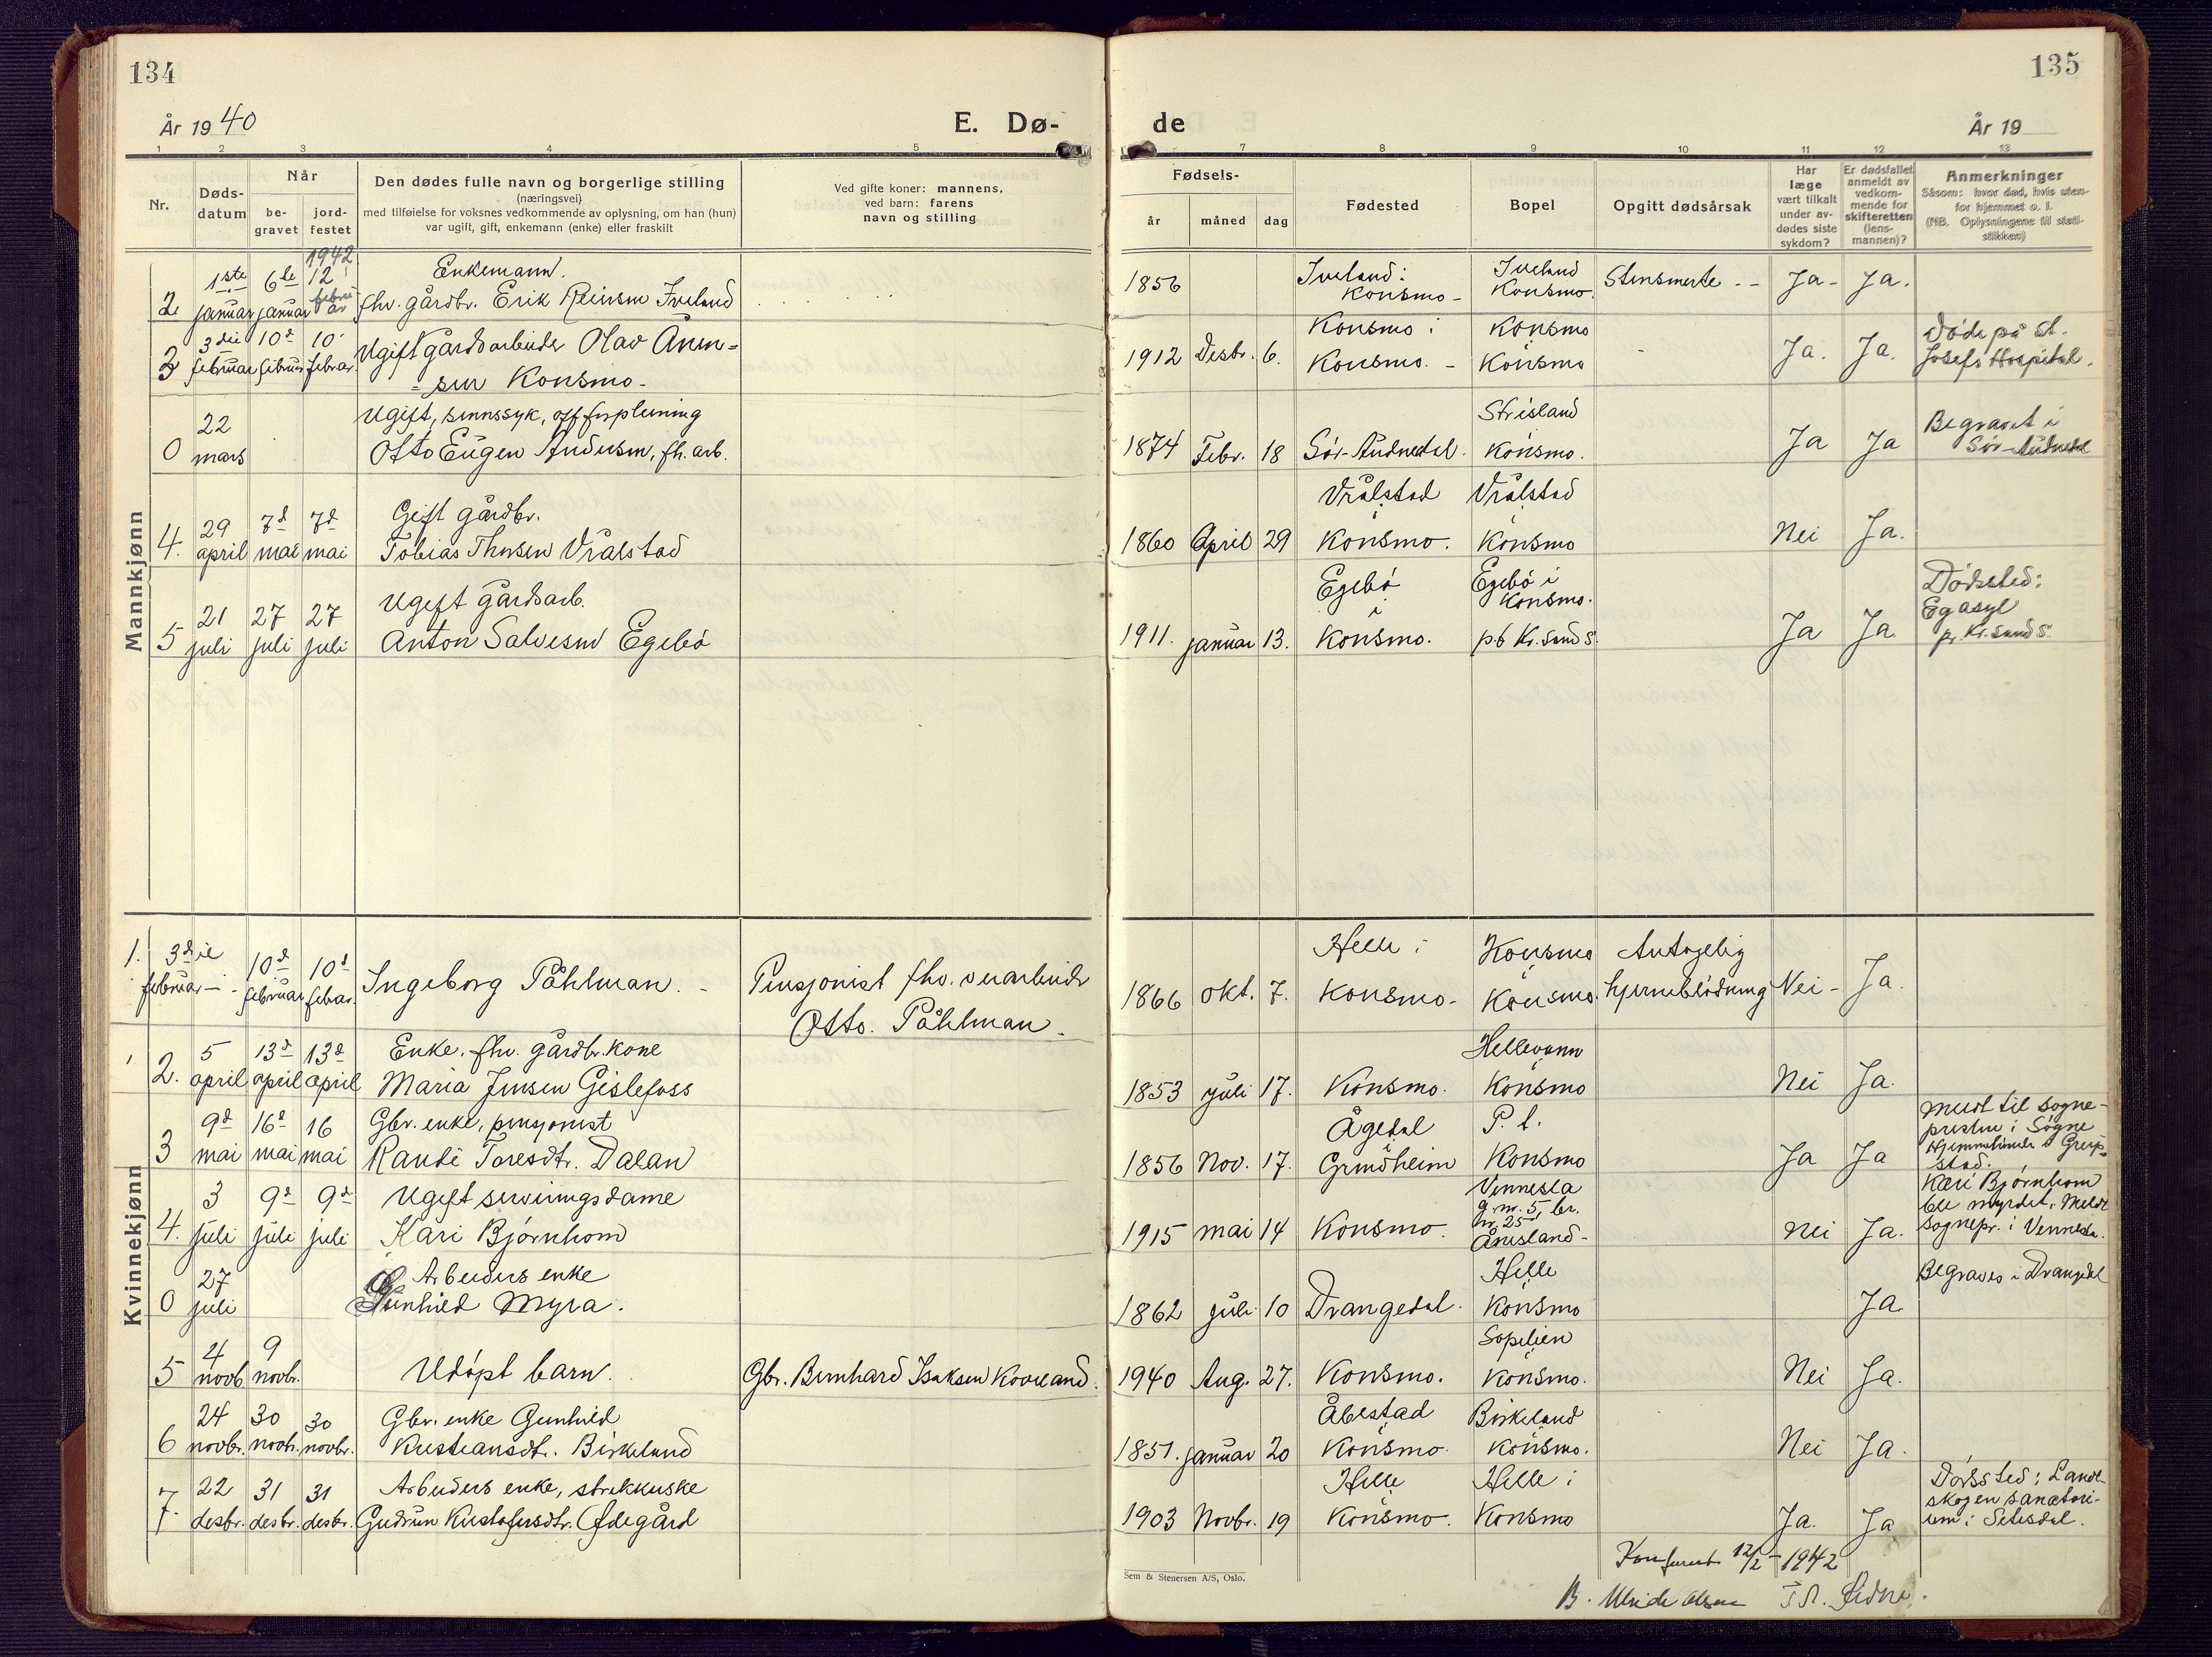 134
År 1940
E. Dø-
1 2 3 4 5
Nr.
Døds-
datum
Når
be-
gravet
jord-
festet
Den dødes fulle navn og borgerlige stilling
(næringsvei)
med tilføielse for voksnes vedkommende av oplysning, om han (hun)
var ugift, gift, enkemann (enke) eller fraskilt
Ved gifte koner: mannens,
ved barn: farens
navn og stilling
Mannkjønn
2 1ste januar 6te januar 1942 12 februar
Enkemann.
fhv. gårdbr. Erik Reinsen Iveland
3 3die februar 10d februar 10 februar
Ugift gårdsarbeider Olav Ånen=
=sen Konsmo-
0 22 mars
Ugift, sinnssyk, off forpleining
Otto Eugen Andersen, fh. arb.
4. 29 april 7d mai 7d mai
Gift gårdbr.
Tobias Thorsen Vrålstad
5 21 juli 27 juli 27 juli
Ugift gårdsarb.
Anton Salvesen Egebø
Kvinnekjønn
1. 3die februar 10d februar 10d februar
Ingeborg Påhlman. -
Pensjonist fhv. veiarbeider
Otto. Påhlman.
2. 5 april 13d april 13d april
Enke. fhv. gårdbr. kone
Maria Jensen Gislefoss
3 9d mai 16d mai 16 mai
Gbr. enke, pensjonist
Randi Toresdtr. Dalan
4. 3 juli 9d juli 9d juli
Ugift serveringsdame
Kari Bjørnhom
0 27 juli
Arbeiders enke
Gunhild Myra.
5 4 novb. 9 novbr.
Udøpt barn.
Gbr. Bernhard Isaksen Koveland.
6 24 novbr. 30 novbr. 30 novbr.
Gbr. enke Gunhild
Kristiansdtr. Birkeland
7. 22 desbr. 31 desbr. 31 desbr.
Arbeiders enke, strikkerske
Gudrun Kristofersdtr. Ødegård
135
de
År 19
7 8 9 10 11 12 13
Fødsels-
år måned dag
Fødested
Bopel
Opgitt dødsårsak
Har
læge
vært tilkalt
under av-
dødes siste
sykdom?
Er dødsfallet
anmeldt av
vedkom-
mende for
skifteretten
(lens-
mannen)?
Anmerkninger
Såsom: hvor død, hvis uten-
for hjemmet o. l.
(NB. Oplysningene til stati-
stikken)
1856 Iveland i Konsmo - Iveland Konsmo. Ja - Ja.
1912 Desbr. 6. Konsmo i Konsmo. - Konsmo Konsmo Ja. Ja.
Døde på St.
Josefs Hospital.
1874 Febr. 18 Sør-Audnedal. Strisland Konsmo. Ja Ja
Begravet i
Sør-Audnedal
1860 April 29 Vrålstad i Konsmo. Vrålstad i Konsmo Nei Ja.
1911. januar 13. Egebø i Konsmo. Egebø i Konsmo. pb Kr.sand S. Ja Ja.
Dødssted:
Eg asyl
pr. Kr.sand S.
1866 okt. 7. Helle i Konsmo- Konsmo i Konsmo. Antagelig hjerneblødning Nei - Ja.
1853 juli 17. Konsmo. Hellevann Konsmo Nei Ja.
1856 Nov. 17. Ågedal i Grindheim P. t. Konsmo Ja Ja
Meldt til sogne-
presten i Søgne
1915 mai 14 Konsmo. Vennesla g.nr. 5, br. nr. 25 Nei Ja.
Kari Bjørnhom
ble myrdet. Meldt
sognepr. i Vennesla.
1862 juli 10 Drangedal. Helle Konsmo Ja.
Begraves i Drangedal
1940 Aug. 27. Konsmo. Konsmo. Nei Ja.
1851. januar 20 Åbestad i Konsmo. Birkeland Konsmo. Nei Ja.
1903 Novbr. 19 Helle i Konsmo. Helle i Konsmo Ja. Ja
Dødssted: Lands-
skogen sanatori-
um i Setesdal.
Konferert 12/2 - 1942
Sem & Stenersen A/S, Oslo.